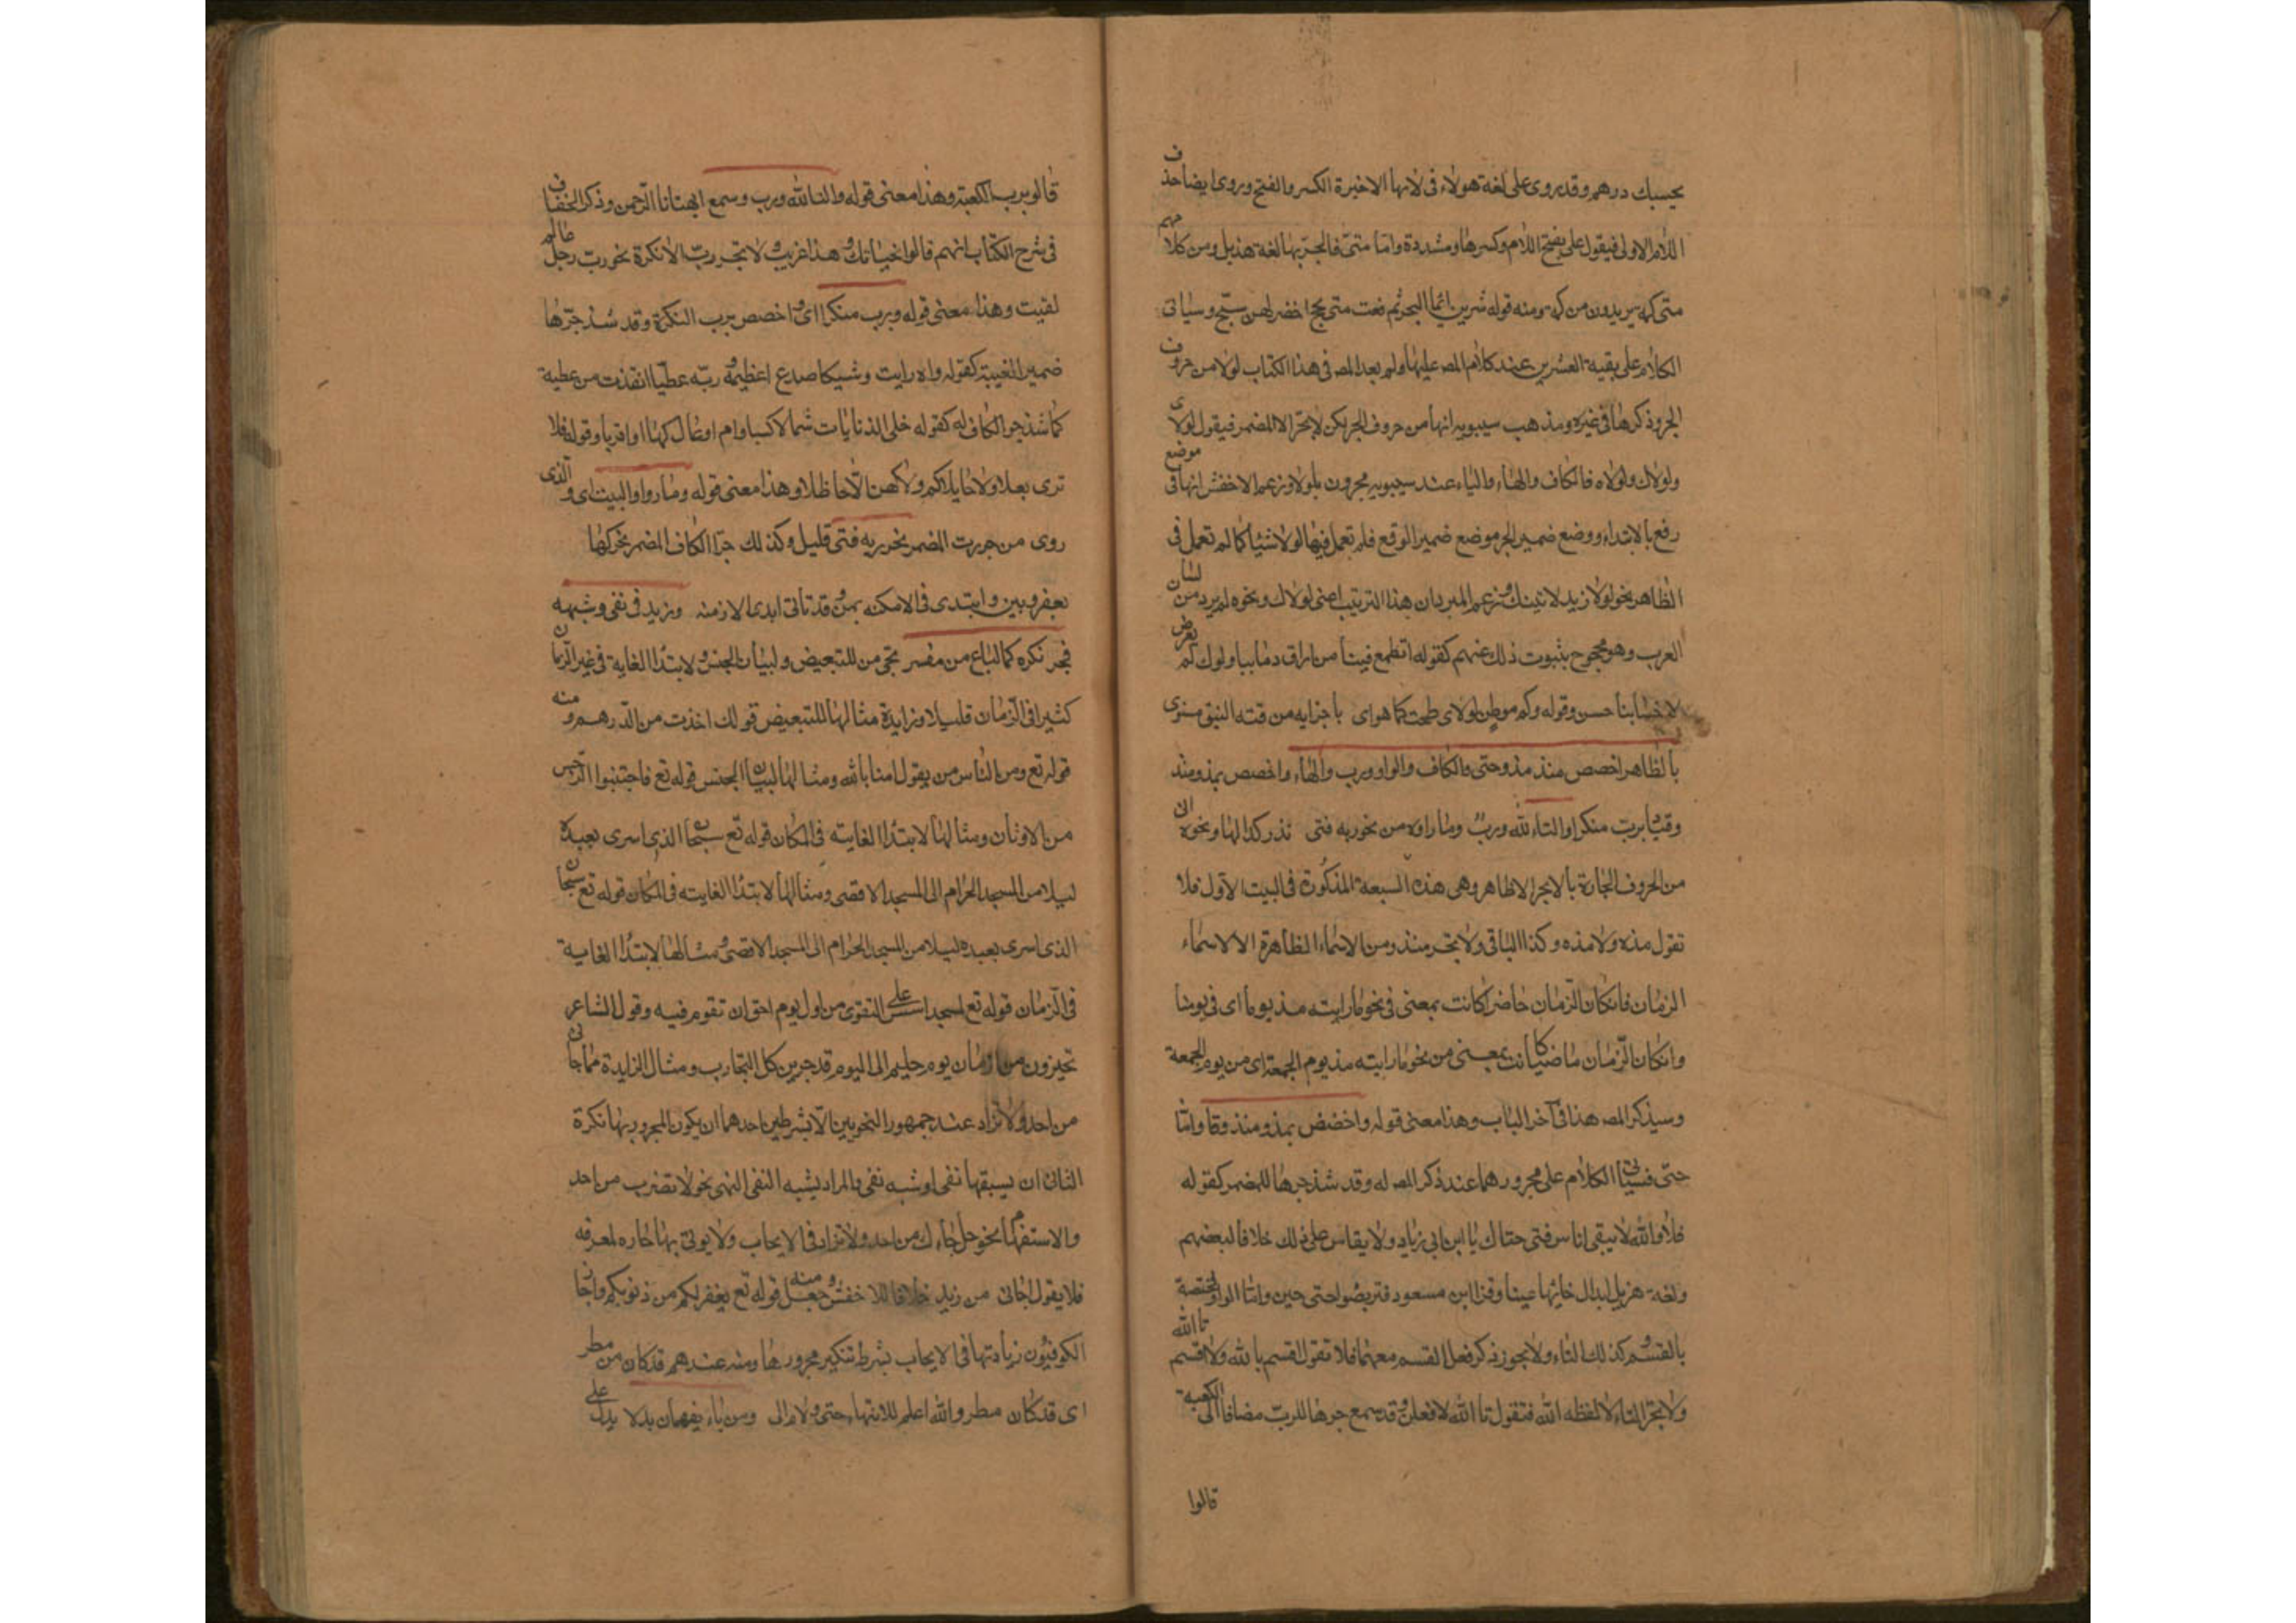 بحسبك درهم وقد روى على لغة هولاء فى لامها الاخيرة الكسر والفتح وروى ايضا حذف
اللام الاولى فيقول على بفتح اللام وكسرها ومشددة واما متى فالجر بها لغة هذيل ومن كلامهم
متى كمه يريدون من كمه ومنه قوله شربن بماء البحر ثم رفعت متى لجج اخضر لهن نئيج وسياتى
الكلام على بقية العشرين عند كلام المص عليها ولم يعد المص فى هذا الكتاب لولا من حروف
الجر وذكرها فى غيره ومذهب سيبويه انها من حروف الجر لكن لا تجر الا المضمر فيقول لولاى
ولولاك ولولاه فالكاف والهاء والياء عند سيبويه مجرون بلولا وزعم الاخفش انها فى موضع
رفع بالابتداء ووضع ضمير الجر موضع ضمير الرفع فلم تعمل فيها لولا شيئا كما لم تعمل فى
الظاهر نحو لولا زيد لاتيتك وزعم المبرد ان هذا التركيب اعنى لولاك ونحوه لم يرد من لسان
العرب وهو محجوج بثبوت ذلك عنهم كقوله اتطمع فينا من اراق دمائنا ولولاك لم يعرض
لاحسابنا حسن وقوله وكم موطن لولاى طحت كما هوى باجرامه من قنة النيق منهوى
بالظاهر اخصص منذ مذ وحتى والكاف والواو ورب والتاء واخصص بمذ ومنذ
وقتا وبرب منكرا والتاء لله ورب وما رووه من نحو ربه فتى نزر كذا كها ونحوه اتى
من الحروف الجارة ما لا يجر الا ظاهر وهى هذه السبعة المذكورة فى البيت الاول فلا
تقول منذه ولا مذه وكذا الباقى ولا تجر منذ ومذ من الاسماء الظاهرة الا الاسماء
الزمان فان كان الزمان حاضرا كانت بمعنى فى نحو ما رايته مذ يومنا اى فى يومنا
وان كان الزمان ماضيا كانت بمعنى من نحو ما رايته مذ يوم الجمعة اى من يوم الجمعة
وسيذكر المص هذا فى آخر الباب وهذا معنى قوله واخصص بمذ ومنذ وقتا واما
حتى فسياتى الكلام على مجرورهما عند ذكر المص له وقد شذ جرها للمضمر كقوله
فلا والله لا يبقى اناس فتى حتاك يا ابن ابى زياد ولا يقاس على ذلك خلافا لبعضهم
ولغة هزيل ابدال حائها عينا وقرا ابن مسعود فتربصوا حتى حين واما الواو مختصة
بالقسم وكذلك التاء ولا يجوز ذكر فعل القسم معهما فلا تقول اقسم بالله ولا اقسم تا الله
ولا تجر التاء الا لفظه الله فتقول تا الله لافعلن وقد سمع جرها للرب مضافا الى الكعبة
قالوا
قالو برب الكعبة وهذا معنى قوله والتا لله ورب وسمع ايضا تا الرحمن وذكر الخفاف
فى شرح الكتاب انهم قالوا تحياتك وهذا غريب ولا تجر رب الا نكرة نحو رب رجل عالم
لقيت وهذا معنى قوله وبرب منكرا اى واخصص برب النكرة وقد شذ جرها
ضمير الغيبة كقوله واه رايت وشيكا صدع اعظمه وربه عطبا انقذت من عطبه
كما شذ جر الكاف له كقوله خلى الذنابات شمالا كثبا وام اوعال كها او اقربا وقوله فلا
ترى بعلا ولا حلايلا كهو ولا كهن الا حاظلا وهذا معنى قوله وما رووا البيت اى والذى
روى من جررت المضمر نحو ربه فتى قليل وكذلك جر الكاف المضمر نحو كها
بعض وبين وابتدى فى الامكنه بمن وقد تاتى لبدء الازمنه وزيد فى نفى وشبهه
فجر نكره كما لباغ من مفر تجى من للتبعيض ولبيان الجنس ولابتدا الغاية فى غير الزمان
كثيرا فى الزمان قليلا وزايدة مثالها للتبعيض قولك اخذت من الدرهم ومنه
قوله تع ومن الناس من يقول امنا بالله ومثالها لبيان الجنس قوله تع فاجتنبوا الرجس
من الاوثان ومثالها لابتدا الغايته فى المكان قوله تع سبحان الذى اسرى بعبده
ليلا من المسجد الحرام الى المسجد الاقصى ومثالها لابتدا الغايته فى المكان قوله تع سبحان
الذى اسرى بعبده ليلا من المسجد الحرام الى المسجد الاقصى ومثالها لابتدا الغاية
فى الزمان قوله تع لمسجد اسس على التقوى من اول يوم احق ان تقوم فيه وقول الشاعر
تخيرن من ازمان يوم حليمه الى اليوم قد جربن كل التجارب ومثال الزايدة ما جانى
من احد ولا تزاد عند جمهور النحويين الا بشرطين احدهما ان يكون المجرور بها نكرة
الثانى ان يسبقها نفى او شبه نفى والمراد بشبه النفى النهى نحو لا تضرب من احد
والاستفهام نحو هل جاءك من احد ولا تزاد فى الايجاب ولا يوتى بها جاره لمعرفه
فلا يقول جانى من زيد خلافا للاخفش ومنه جعل قوله تع يغفر لكم من ذنوبكم واجاز
الكوفيون زيادتها فى الايجاب بشرط تنكير مجرورها ومنه عندهم قد كان من مطر
اى قد كان مطر والله اعلم للانتهاء حتى ولام الى ومن وباء يفهمان بدلا يدل على